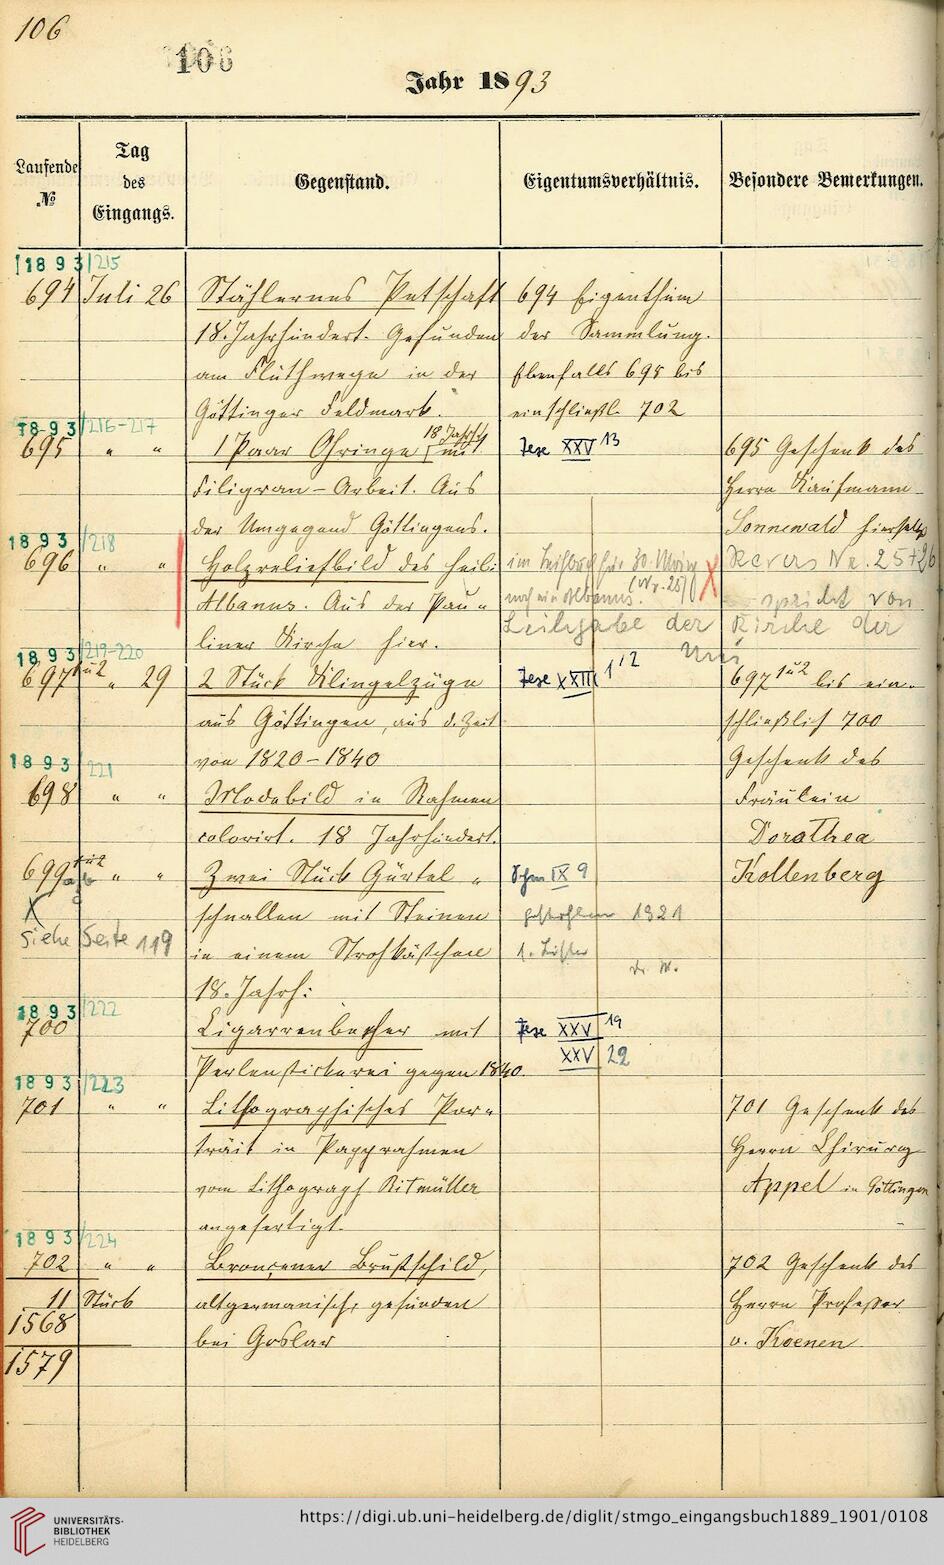 106
106
Jahr 1893
Laufende № Tag des Eingangs. Gegenstand. Eigentumsverhältnis. Besondere Bemerkungen.
1893/215
694 Juli 26 Stählernes Petschaft 694 Eigenthum
18. Jahrhundert. Gefunden der Sammlung.
am Fluthwege in der Ebenfalls 695 bis
Göttinger Feldmark. einschließl. 702
1893/216-217
18 Jahrh
695 " " 1 Paar Ohringe mit XXV 13 695 Geschenk des
Filigran-Arbeit. Aus Herrn Kaufmann
der Umgegend Göttingens. Sonnewald hierselbst
1893/218
696 " " Holzreliefbild des heili Revers Nr. 25+26
Albanus. Aus der Pau- noch ein Albanus. (Nr. 25) spricht von
liner Kirche hier. Leihgabe der Kirche der
Uni
1893/219-220
697 1 u 2 " 29 2 Stück Klingelzüge XXIII 1/2 697 1 u 2 bis ein-
aus Göttingen, aus d. Zeit schließlich 700
von 1820-1840 Geschenk des
1893/221
698 " " Modebild in Rahmen Fräulein
colorirt. 18 Jahrhundert. Dorothea
699 1 u 2 a b " " Zwei Stück Gürtel- IX 9 Kollenberg
X
schnallen mit Steinen gestohlen 1921
siehe Seite 119 in einem Strohkästchen
18. Jahrh:
1893/222
700 Cigarrenbecher mit XXV 19
XXV 22
Perlenstickerei gegen 1840.
1893/223
701 " " Lithographisches Por- 701 Geschenk des
träit in Papprahmen Herrn Chirurg
vom Lithograph Ritmüller Appel in Göttingen
angefertigt.
1893/224
702 " " Broncener Brustschild, 702 Geschenk des
11 Stück altgermanisch, gefunden Herrn Professor
1568
bei Goslar v. Koenen
1579
UNIVERSITÄTS-
BIBLIOTHEK
HEIDELBERG
https://digi.ub.uni-heidelberg.de/diglit/stmgo_eingangsbuch1889_1901/0108